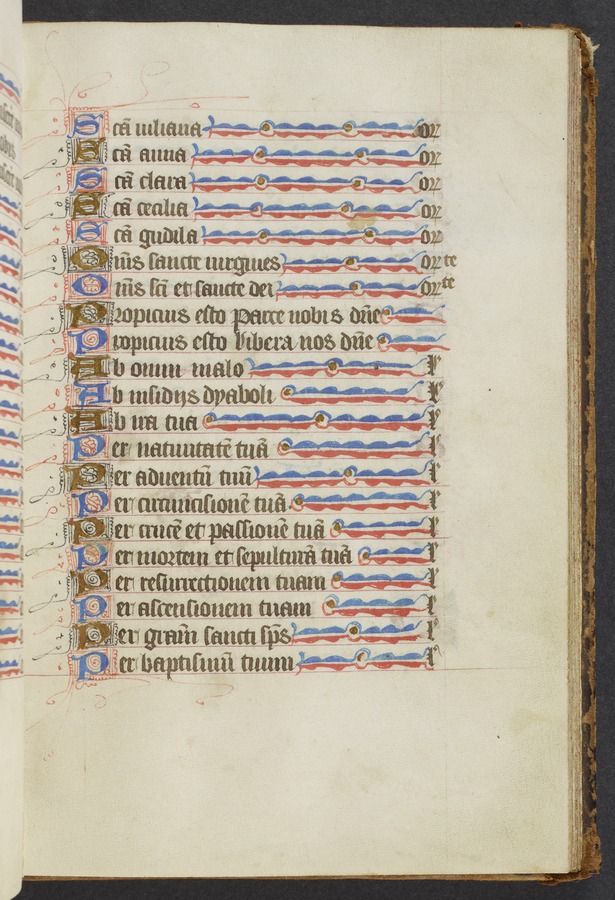 Scā iuliana or
Scā anna or
Scā clara or
Scā cecilia or
Scā gudila or
Om̄s sancte uirgines orte
Om̄s sc̄i et sancte dei orte
Propicius esto parce nobis dn̄e
Propicius esto libera nos dn̄e
Ab omni malo l
Ab insidijs dyaboli l
Ab ira tua l
Per natiuitatē tuā l
Per aduentū tuū l
Per circūcisionē tuā l
Per crucē et passionē tuā l
Per mortem et sepulturā tuā l
Per resurrectionem tuam l
Per ascensionem tuam l
Per gram̄ sancti sp̄s l
Per baptismū tuum l